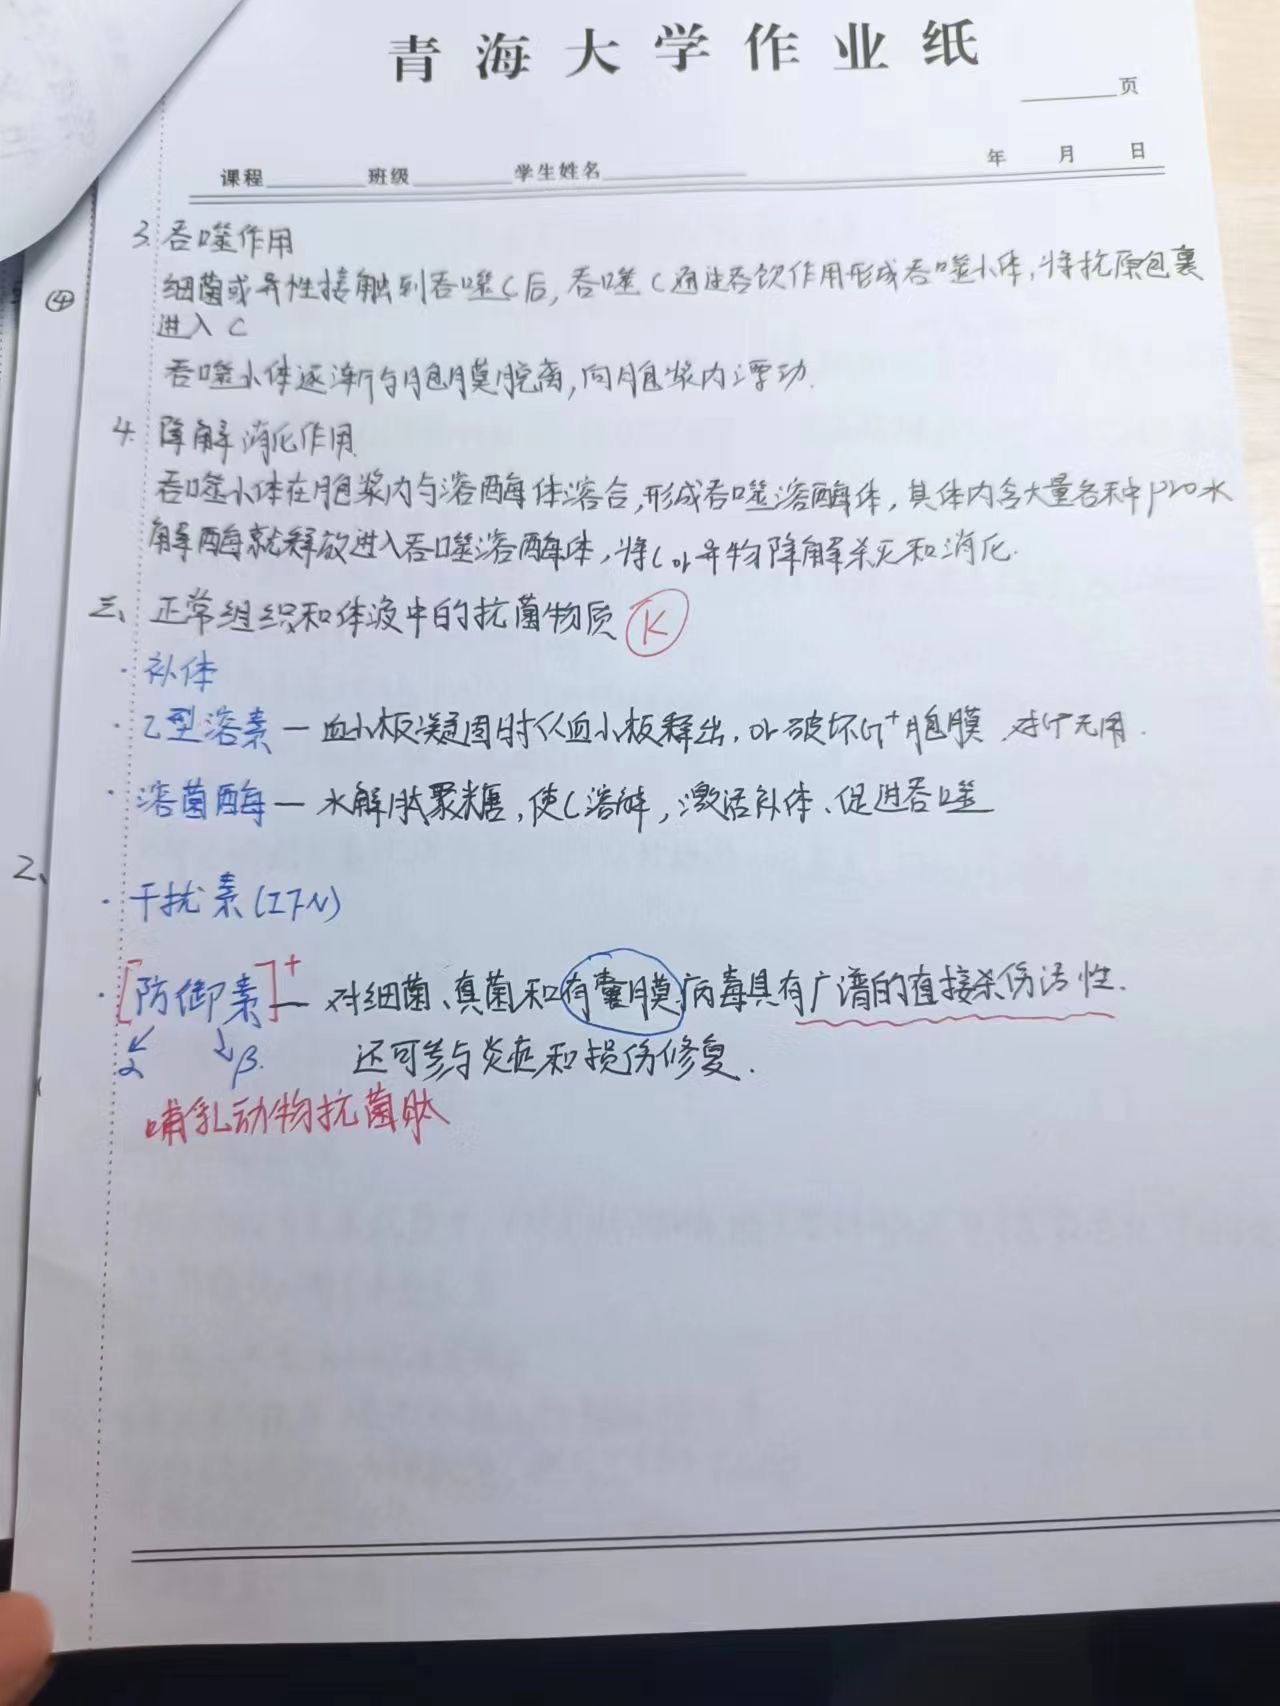 青海大学作业纸
页
课程 班级 学生姓名 年 月 日
3. 吞噬作用
④
细菌或异性接触到吞噬C后, 吞噬C通过吞饮作用形成吞噬小体, 将抗原包裹
进入C
吞噬小体逐渐与胞膜脱离, 向胞浆内漂动.
4. 降解消化作用
吞噬小体在胞浆内与溶酶体溶合, 形成吞噬溶酶体, 其体内含大量各种pro水
解酶就释放进入吞噬溶酶体, 将C or 异物降解杀灭和消化.
三、正常组织和体液中的抗菌物质 K
· 补体
· 乙型溶素 — 血小板凝固时从血小板释出, or 破坏G⁺胞膜 对G⁻无用.
· 溶菌酶 — 水解肽聚糖, 使C溶解, 激活补体、促进吞噬
2、
· 干扰素 (IFN)
· [防御素]⁺ — 对细菌、真菌和有囊膜病毒具有广谱的直接杀伤活性.
α β. 还可参与炎症和损伤修复.
哺乳动物抗菌肽